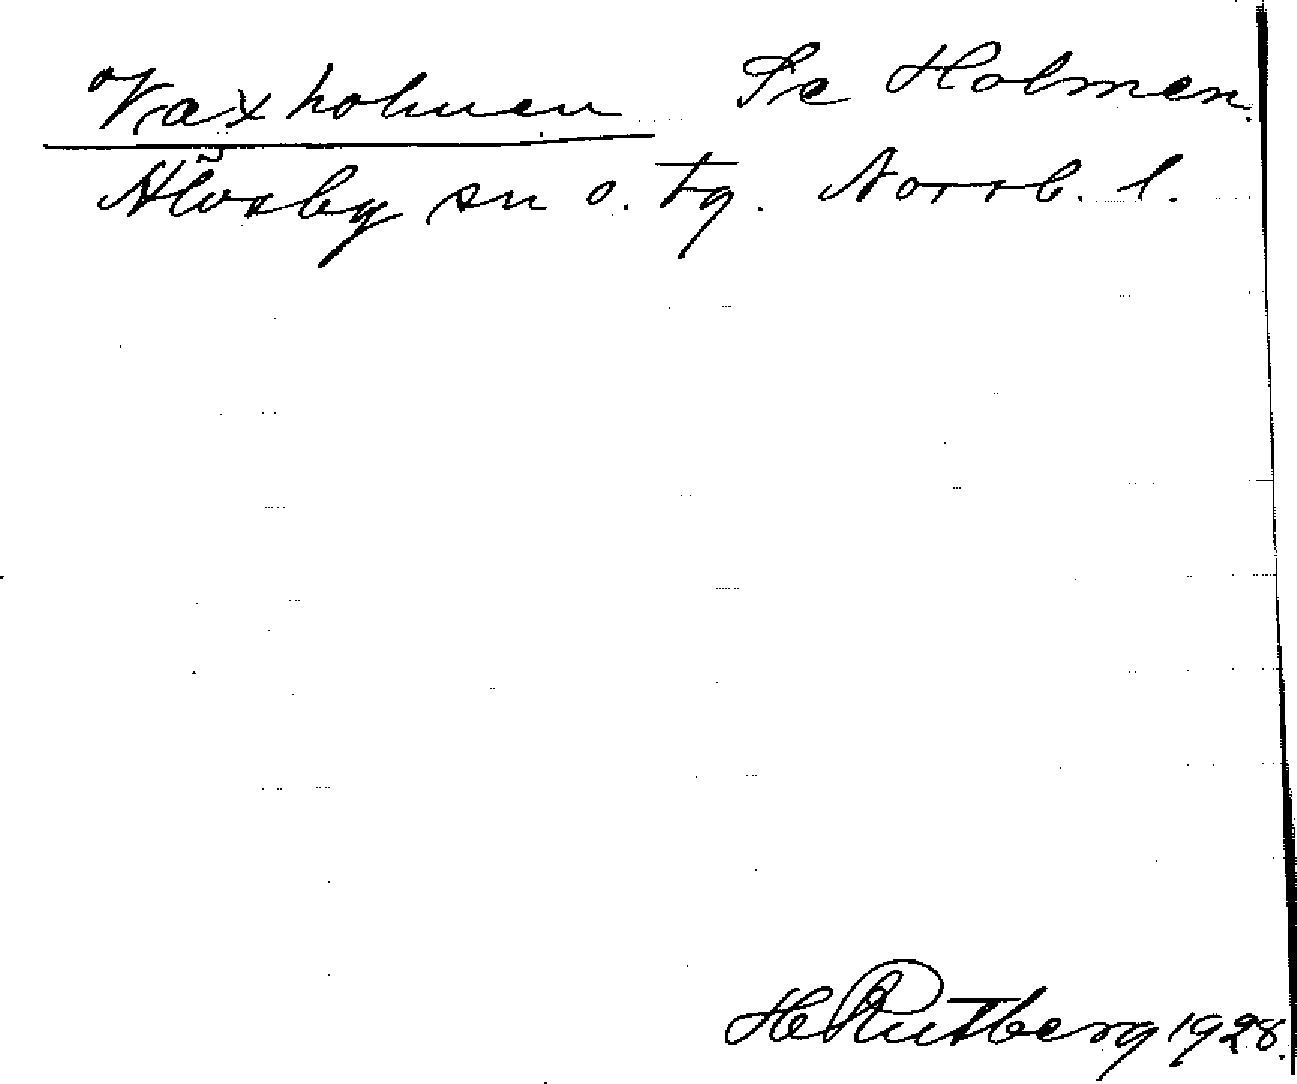 Vaxholmen Se Holmen.
Älvsby sn o. tg. Norrb. l.
H Rutberg 1928.